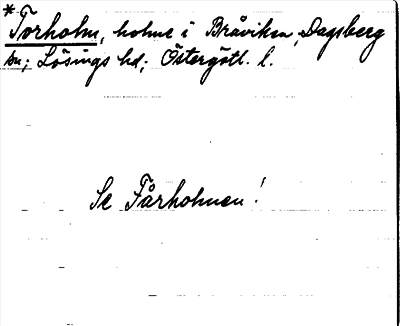 * Torholm, holme i Bråviken, Dagsberg
sn; Lösings hd; Östergötl. l.
Se Fårholmen!